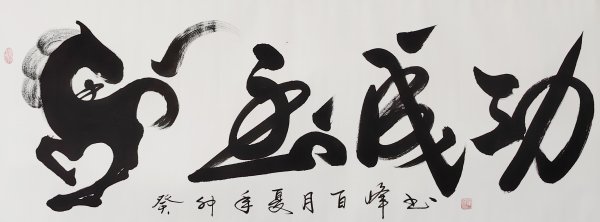 马到成功
癸卯年夏月百峰书